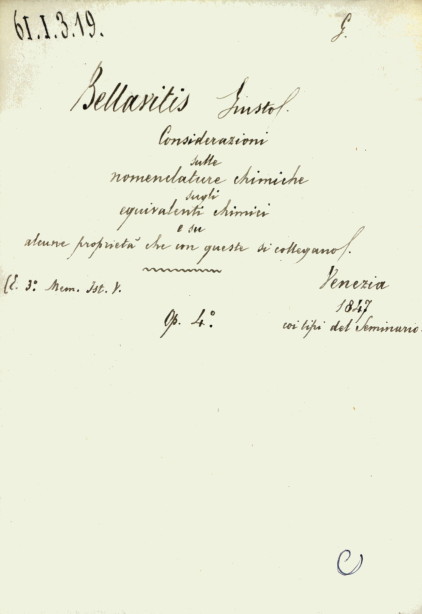 61.1.3.19.
G.
Bellavitis Giusto.
Considerazioni
sulle
nomenclature chimiche
sugli
equivalenti chimici
e su
alcune proprietà che con queste si collegano.
(T. 3º Mem. Ist. V.
Venezia
1847
Op. 4º
coi tipi del Seminario.
C